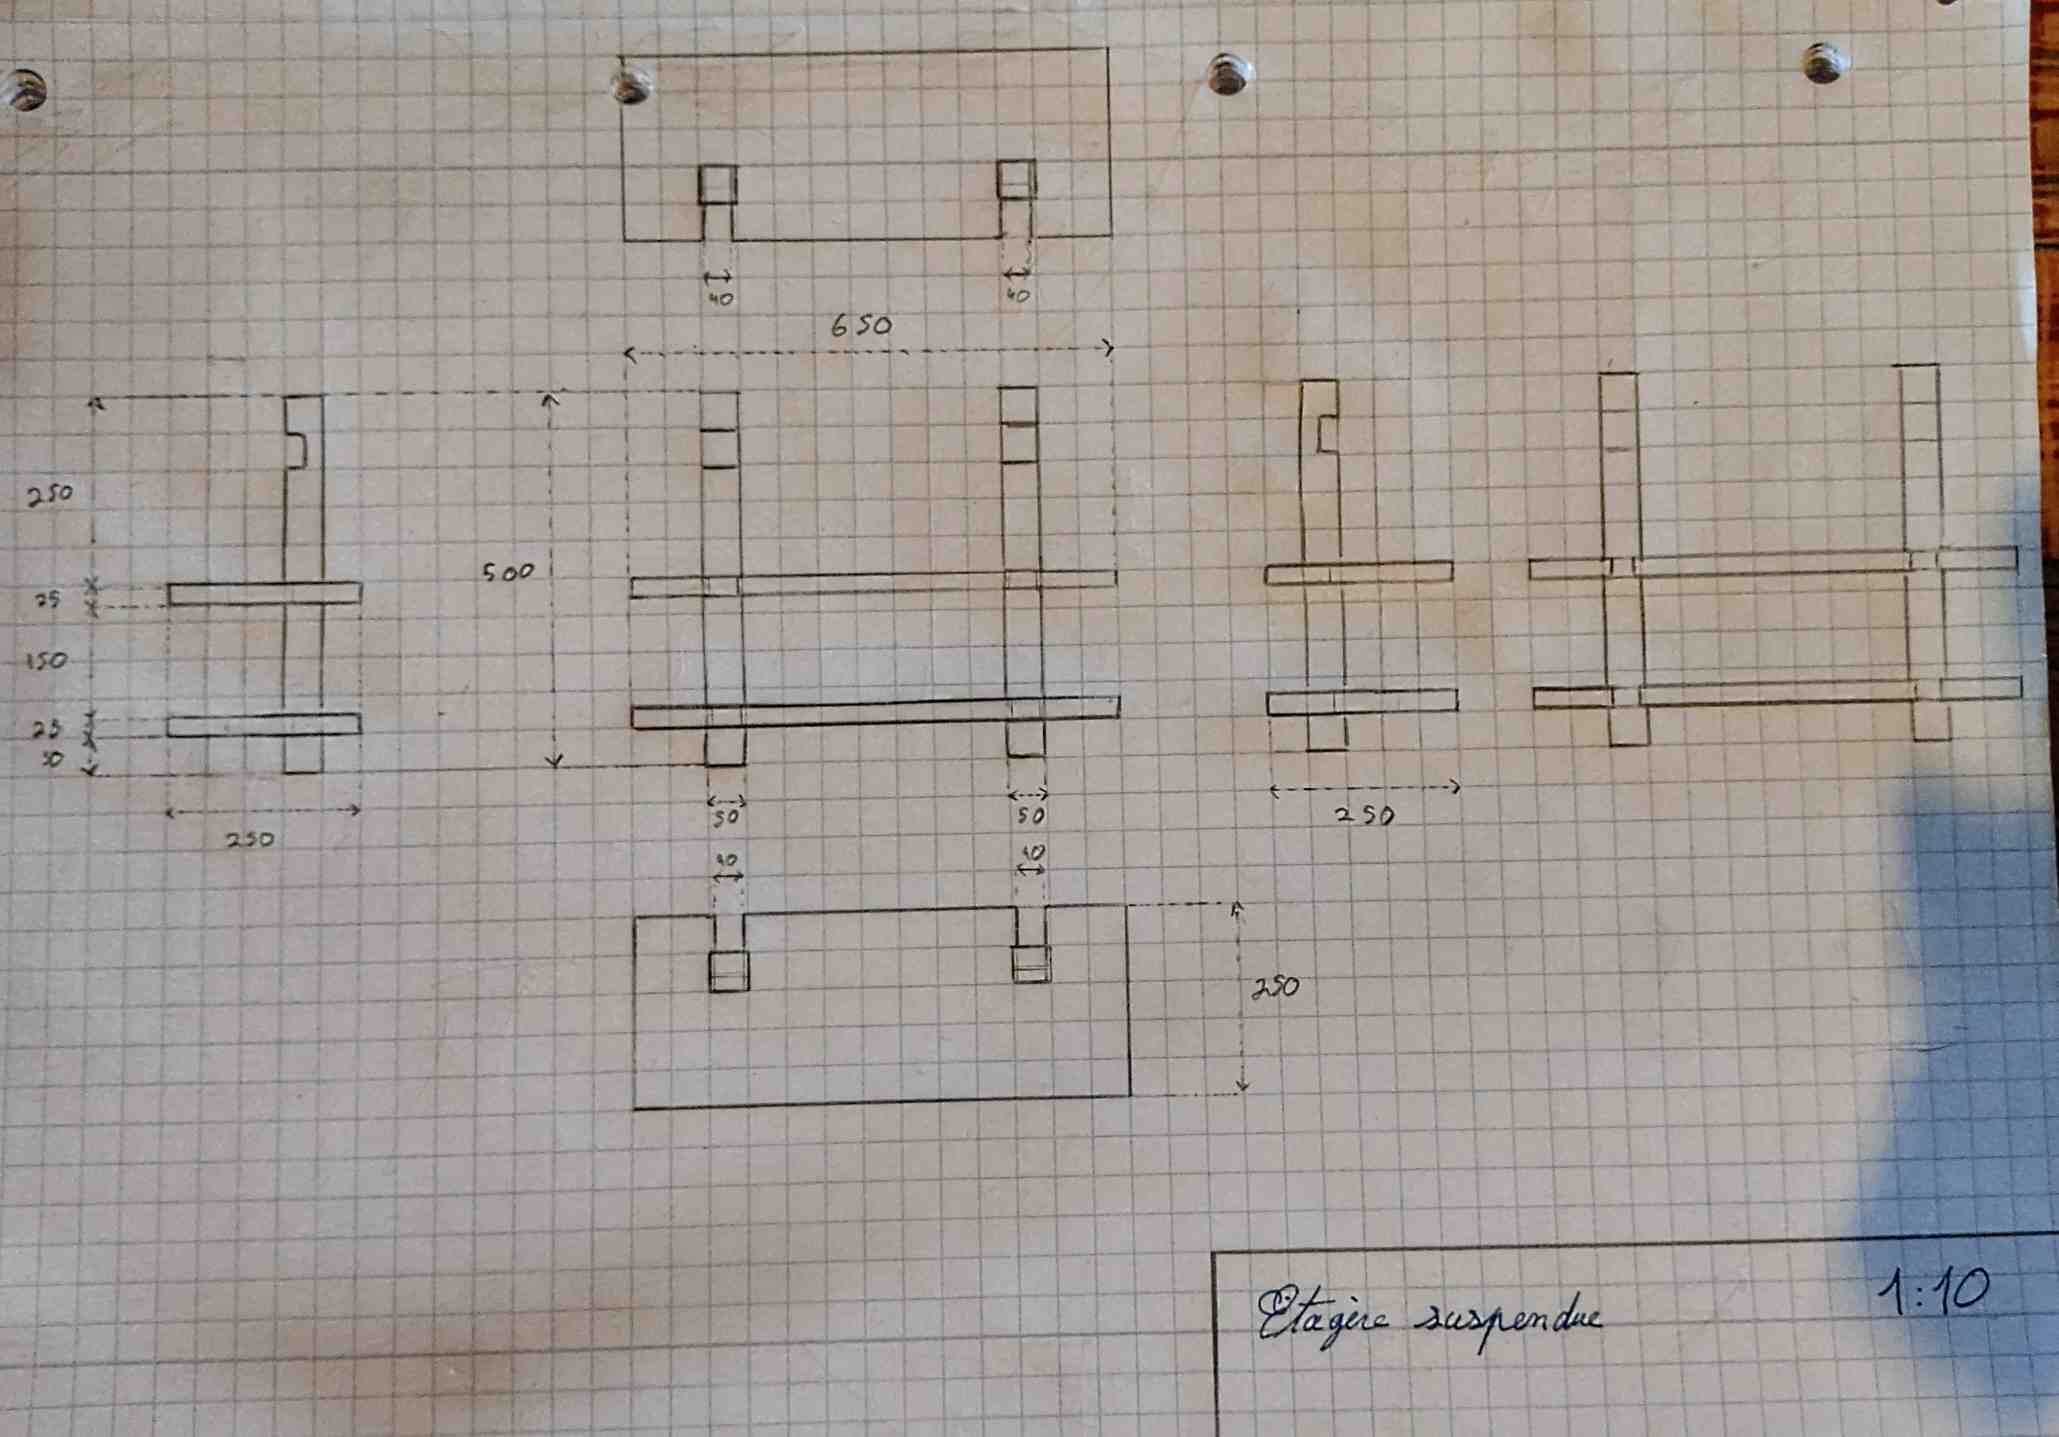 40 40
650
250
500
25
150
25
50
250
50 50
250
40 40
250
Etagère suspendue
1:10